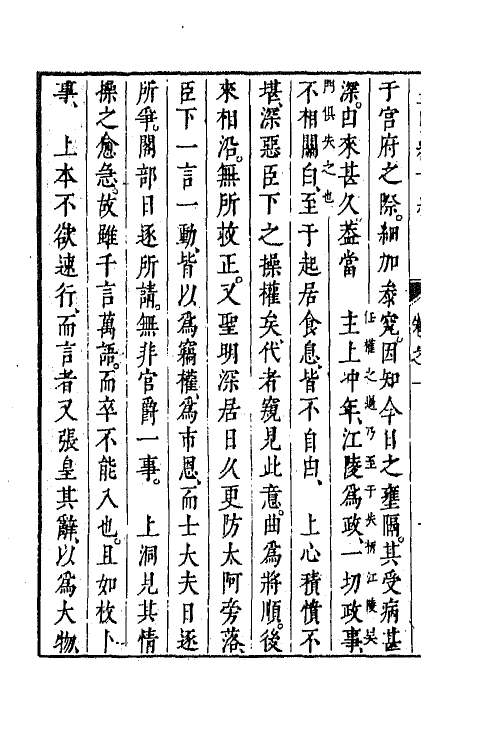 于宮府之際。細加叅究。因知今日之壅隔。其受病甚
任權之過乃至于失柄江陵吳
深。由來甚久。葢當　主上冲年、江陵爲政、一切政事、
門俱失之也
不相關白、至于起居食息、皆不自由、　上心積憤不
堪、深惡臣下之操權矣、代者窺見此意。曲爲將順。後
來相沿。無所救正。又聖明深居日久更防太阿旁落、
臣下一言一動、皆以爲竊權、爲市恩、而士大夫日逐
所爭。閣部日逐所請。無非官爵一事。　上洞見其情
操之愈急。故雖千言萬語。而卒不能入也。且如枚卜
事、　上本不欲速行、而言者又張皇其辭、以爲大物、